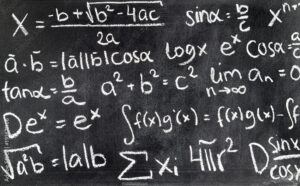 x = -b+√b²-4ac / 2a sinα = b/c x^n+
ā·b̄ = |a||b|cosα logx e^x cosα =
tanα = b/a a² + b² = c² lim n→∞ aₙ = 0
De^x = e^x ∫f(x)g'(x) = f(x)g(x) - ∫f
√a²b = |a|b ∑xᵢ 4πr² D sinx / cosx